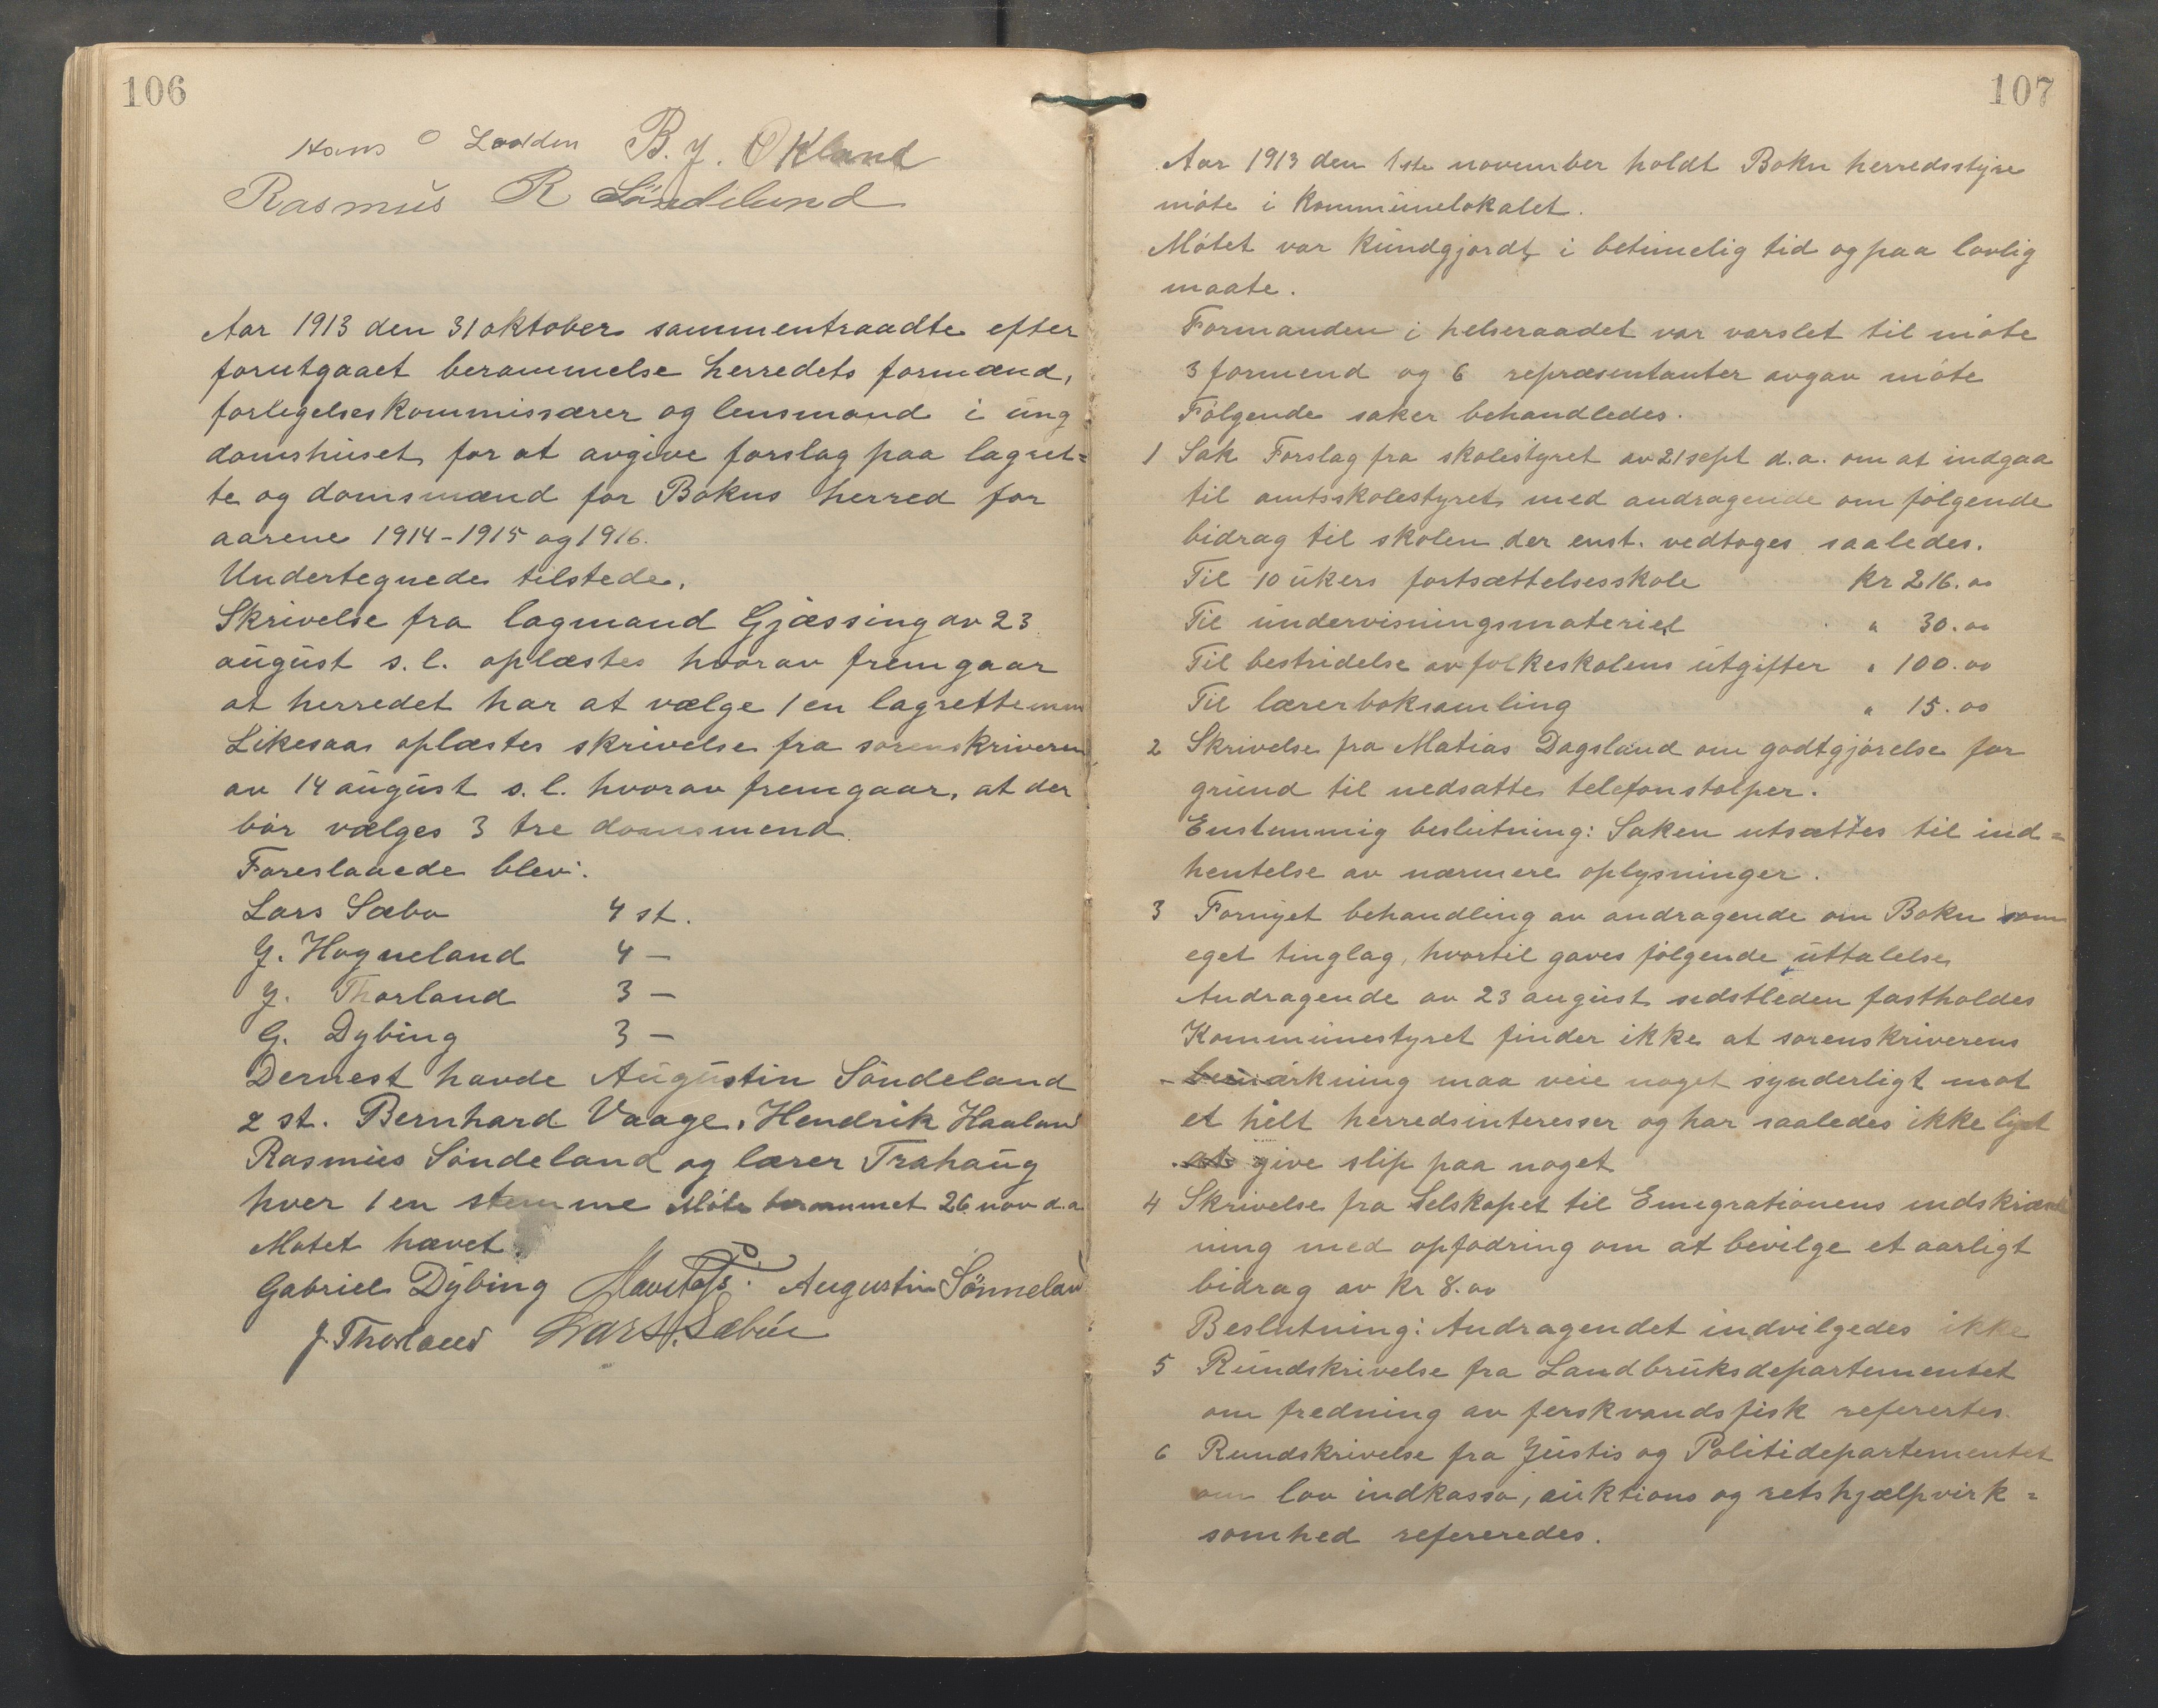 106
Hans O Loodden B. J. Økland
Rasmus R Söndeland
Aar 1913 den 31 oktober sammentraadte efter
forutgaaet berammelse herredets formænd,
forligelseskommissærer og lensmand i ung
domshuset for at avgive forslag paa lagret=
te og domsmænd for Bokns herred for
aarene 1914-1915 og 1916.
Undertegnede tilstede.
Skrivelse fra lagmand Gjæssing av 23
august s. l. oplæstes hvorav fremgaar
at herredet har at vælge 1 en lagrettemm
Likesaa oplæstes skrivelse fra sorenskriveren
av 14 august s. l. hvorav fremgaar, at der
bör vælges 3 tre domsmend.
Foreslaaede blev:
Lars Sæbø 4 st.
J. Hogneland 4 —
J. Thorland 3 —
G. Dybing 3 —
Dernest havde Augustin Söndeland
2 st. Bernhard Vaage, Hendrik Haaland
Rasmus Söndeland og lærer Trahaug
hver 1 en stemme Møte berammet 26 nov d.a
Møtet hævet.
Gabriel Dÿbing Augustin Sönneland
J Thorland Lars. Sæbøe
107
Aar 1913 den 1ste november holdt Bokn herredsstyre
møte i kommunelokalet.
Møtet var kundgjordt i betimelig tid og paa lovlig
maate.
Formanden i helseraadet var varslet til møte
3 formend og 6 repræsentanter avgav møte
Følgende saker behandledes.
1 Sak Forslag fra skolestyret av 21 sept d.a. om at indgaa
til amtsskolestyret med andragende om følgende
bidrag til skolen der enst. vedtoges saaledes.
Til 10 ukers fortsættelsesskole kr 216.00
Til undervisningsmateriel " 30.00
Til bestridelse av folkeskolens utgifter " 100.00
Til lærerboksamling " 15.00
2 Skrivelse fra Matias Dagsland om godtgjørelse for
grund til nedsatte telefonstolper.
Enstemmig beslutning: Saken utsættes til ind=
hentelse av nærmere oplysninger.
3 Fornyet behandling av andragende om Bokn som
eget tinglag, hvortil gaves følgende uttalelse
Andragende av 23 august sidstleden fastholdes
Kommunestyret finder ikke at sorenskriverens
bemærkning maa veie noget synderligt mot
et helt herredsinteresser og har saaledes ikke lyst
at give slip paa noget
4 Skrivelse fra Selskapet til Emigrationens indskrænk
ning med opfodring om at bevilge et aarligt
bidrag av kr 8.00
Beslutning: Andragendet indvilgedes ikke
5 Rundskrivelse fra Landbruksdepartementet
om fredning av ferskvandsfisk referertes.
6 Rundskrivelse fra Justis og Politidepartementet
om lov indkasso, auktions og retshjælpvirk=
somhed refereredes.